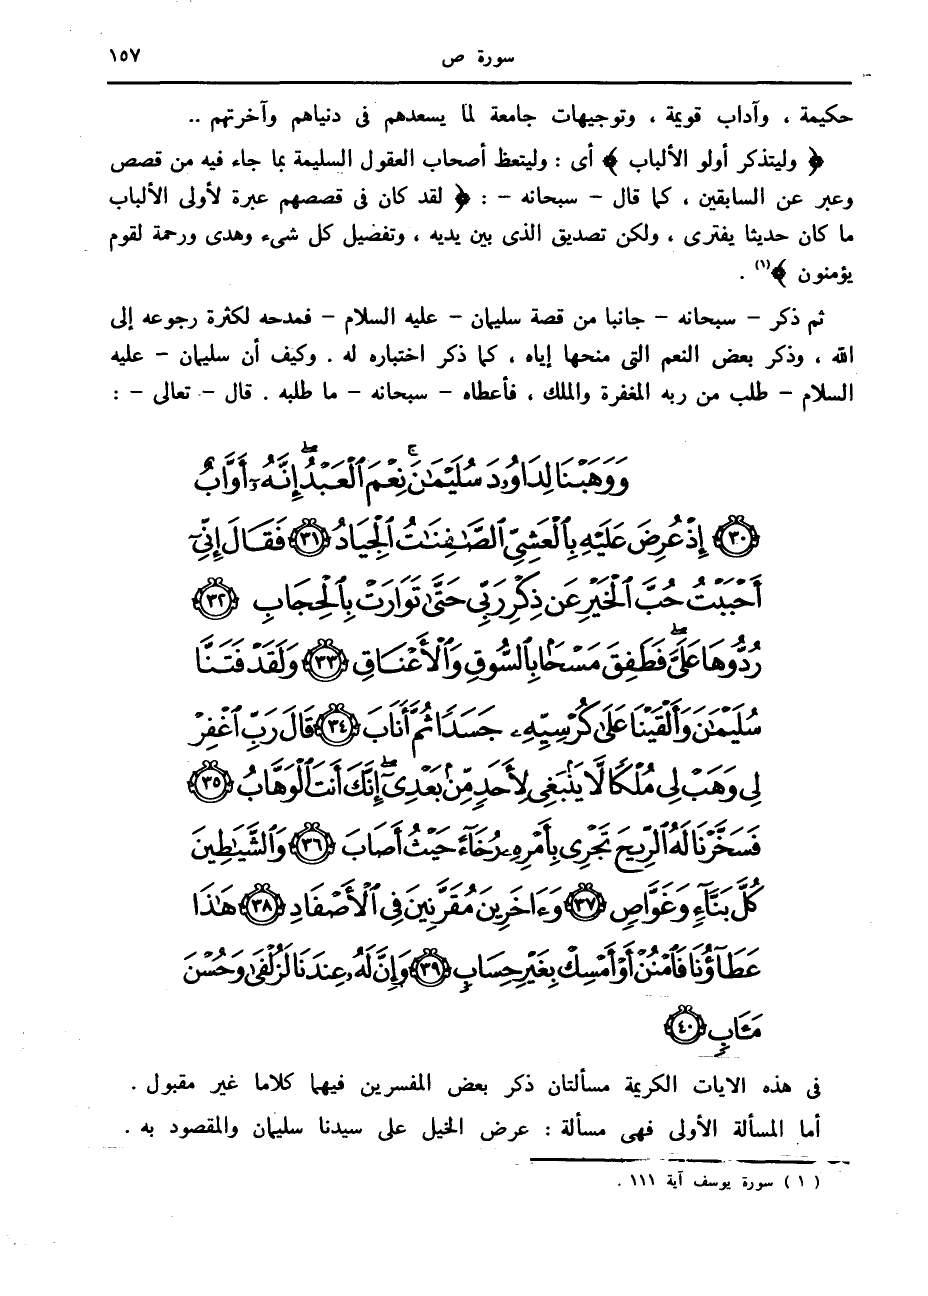 سورة ص ١٥٧
حكيمة ، وآداب قويمة ، وتوجيهات جامعة لما يسعدهم فى دنياهم وآخرتهم ..
﴿ وليتذكر أولو الألباب ﴾ أى : وليتعظ أصحاب العقول السليمة بما جاء فيه من قصص
وعبر عن السابقين ، كما قال – سبحانه – : ﴿ لقد كان فى قصصهم عبرة لأولى الألباب
ما كان حديثا يفترى ، ولكن تصديق الذى بين يديه ، وتفضيل كل شىء وهدى ورحمة لقوم
يؤمنون ﴾(١) .
ثم ذكر – سبحانه – جانبا من قصة سليمان – عليه السلام – فمدحه لكثرة رجوعه إلى
الله ، وذكر بعض النعم التى منحها إياه ، كما ذكر اختباره له . وكيف أن سليمان – عليه
السلام – طلب من ربه المغفرة والملك ، فأعطاه – سبحانه – ما طلبه . قال – تعالى – :
وَوَهَبْنَا لِدَاوُۥدَ سُلَيْمَٰنَۚ نِعْمَ ٱلْعَبْدُۖ إِنَّهُۥٓ أَوَّابٌ
٣٠ إِذْ عُرِضَ عَلَيْهِ بِٱلْعَشِىِّ ٱلصَّٰفِنَٰتُ ٱلْجِيَادُ ٣١ فَقَالَ إِنِّىٓ
أَحْبَبْتُ حُبَّ ٱلْخَيْرِ عَن ذِكْرِ رَبِّى حَتَّىٰ تَوَارَتْ بِٱلْحِجَابِ ٣٢
رُدُّوهَا عَلَىَّۖ فَطَفِقَ مَسْحًۢا بِٱلسُّوقِ وَٱلْأَعْنَاقِ ٣٣ وَلَقَدْ فَتَنَّا
سُلَيْمَٰنَ وَأَلْقَيْنَا عَلَىٰ كُرْسِيِّهِۦ جَسَدًا ثُمَّ أَنَابَ ٣٤ قَالَ رَبِّ ٱغْفِرْ
لِى وَهَبْ لِى مُلْكًا لَّا يَنۢبَغِى لِأَحَدٍ مِّنۢ بَعْدِىٓۖ إِنَّكَ أَنتَ ٱلْوَهَّابُ ٣٥
فَسَخَّرْنَا لَهُ ٱلرِّيحَ تَجْرِى بِأَمْرِهِۦ رُخَآءً حَيْثُ أَصَابَ ٣٦ وَٱلشَّيَٰطِينَ
كُلَّ بَنَّآءٍ وَغَوَّاصٍ ٣٧ وَءَاخَرِينَ مُقَرَّنِينَ فِى ٱلْأَصْفَادِ ٣٨ هَٰذَا
عَطَآؤُنَا فَٱمْنُنْ أَوْ أَمْسِكْ بِغَيْرِ حِسَابٍ ٣٩ وَإِنَّ لَهُۥ عِندَنَا لَزُلْفَىٰ وَحُسْنَ
مَـَٔابٍ ٤٠
فى هذه الايات الكريمة مسألتان ذكر بعض المفسرين فيهما كلاما غير مقبول .
أما المسألة الأولى فهى مسألة : عرض الخيل على سيدنا سليمان والمقصود به .
( ١ ) سورة يوسف آية ١١١ .